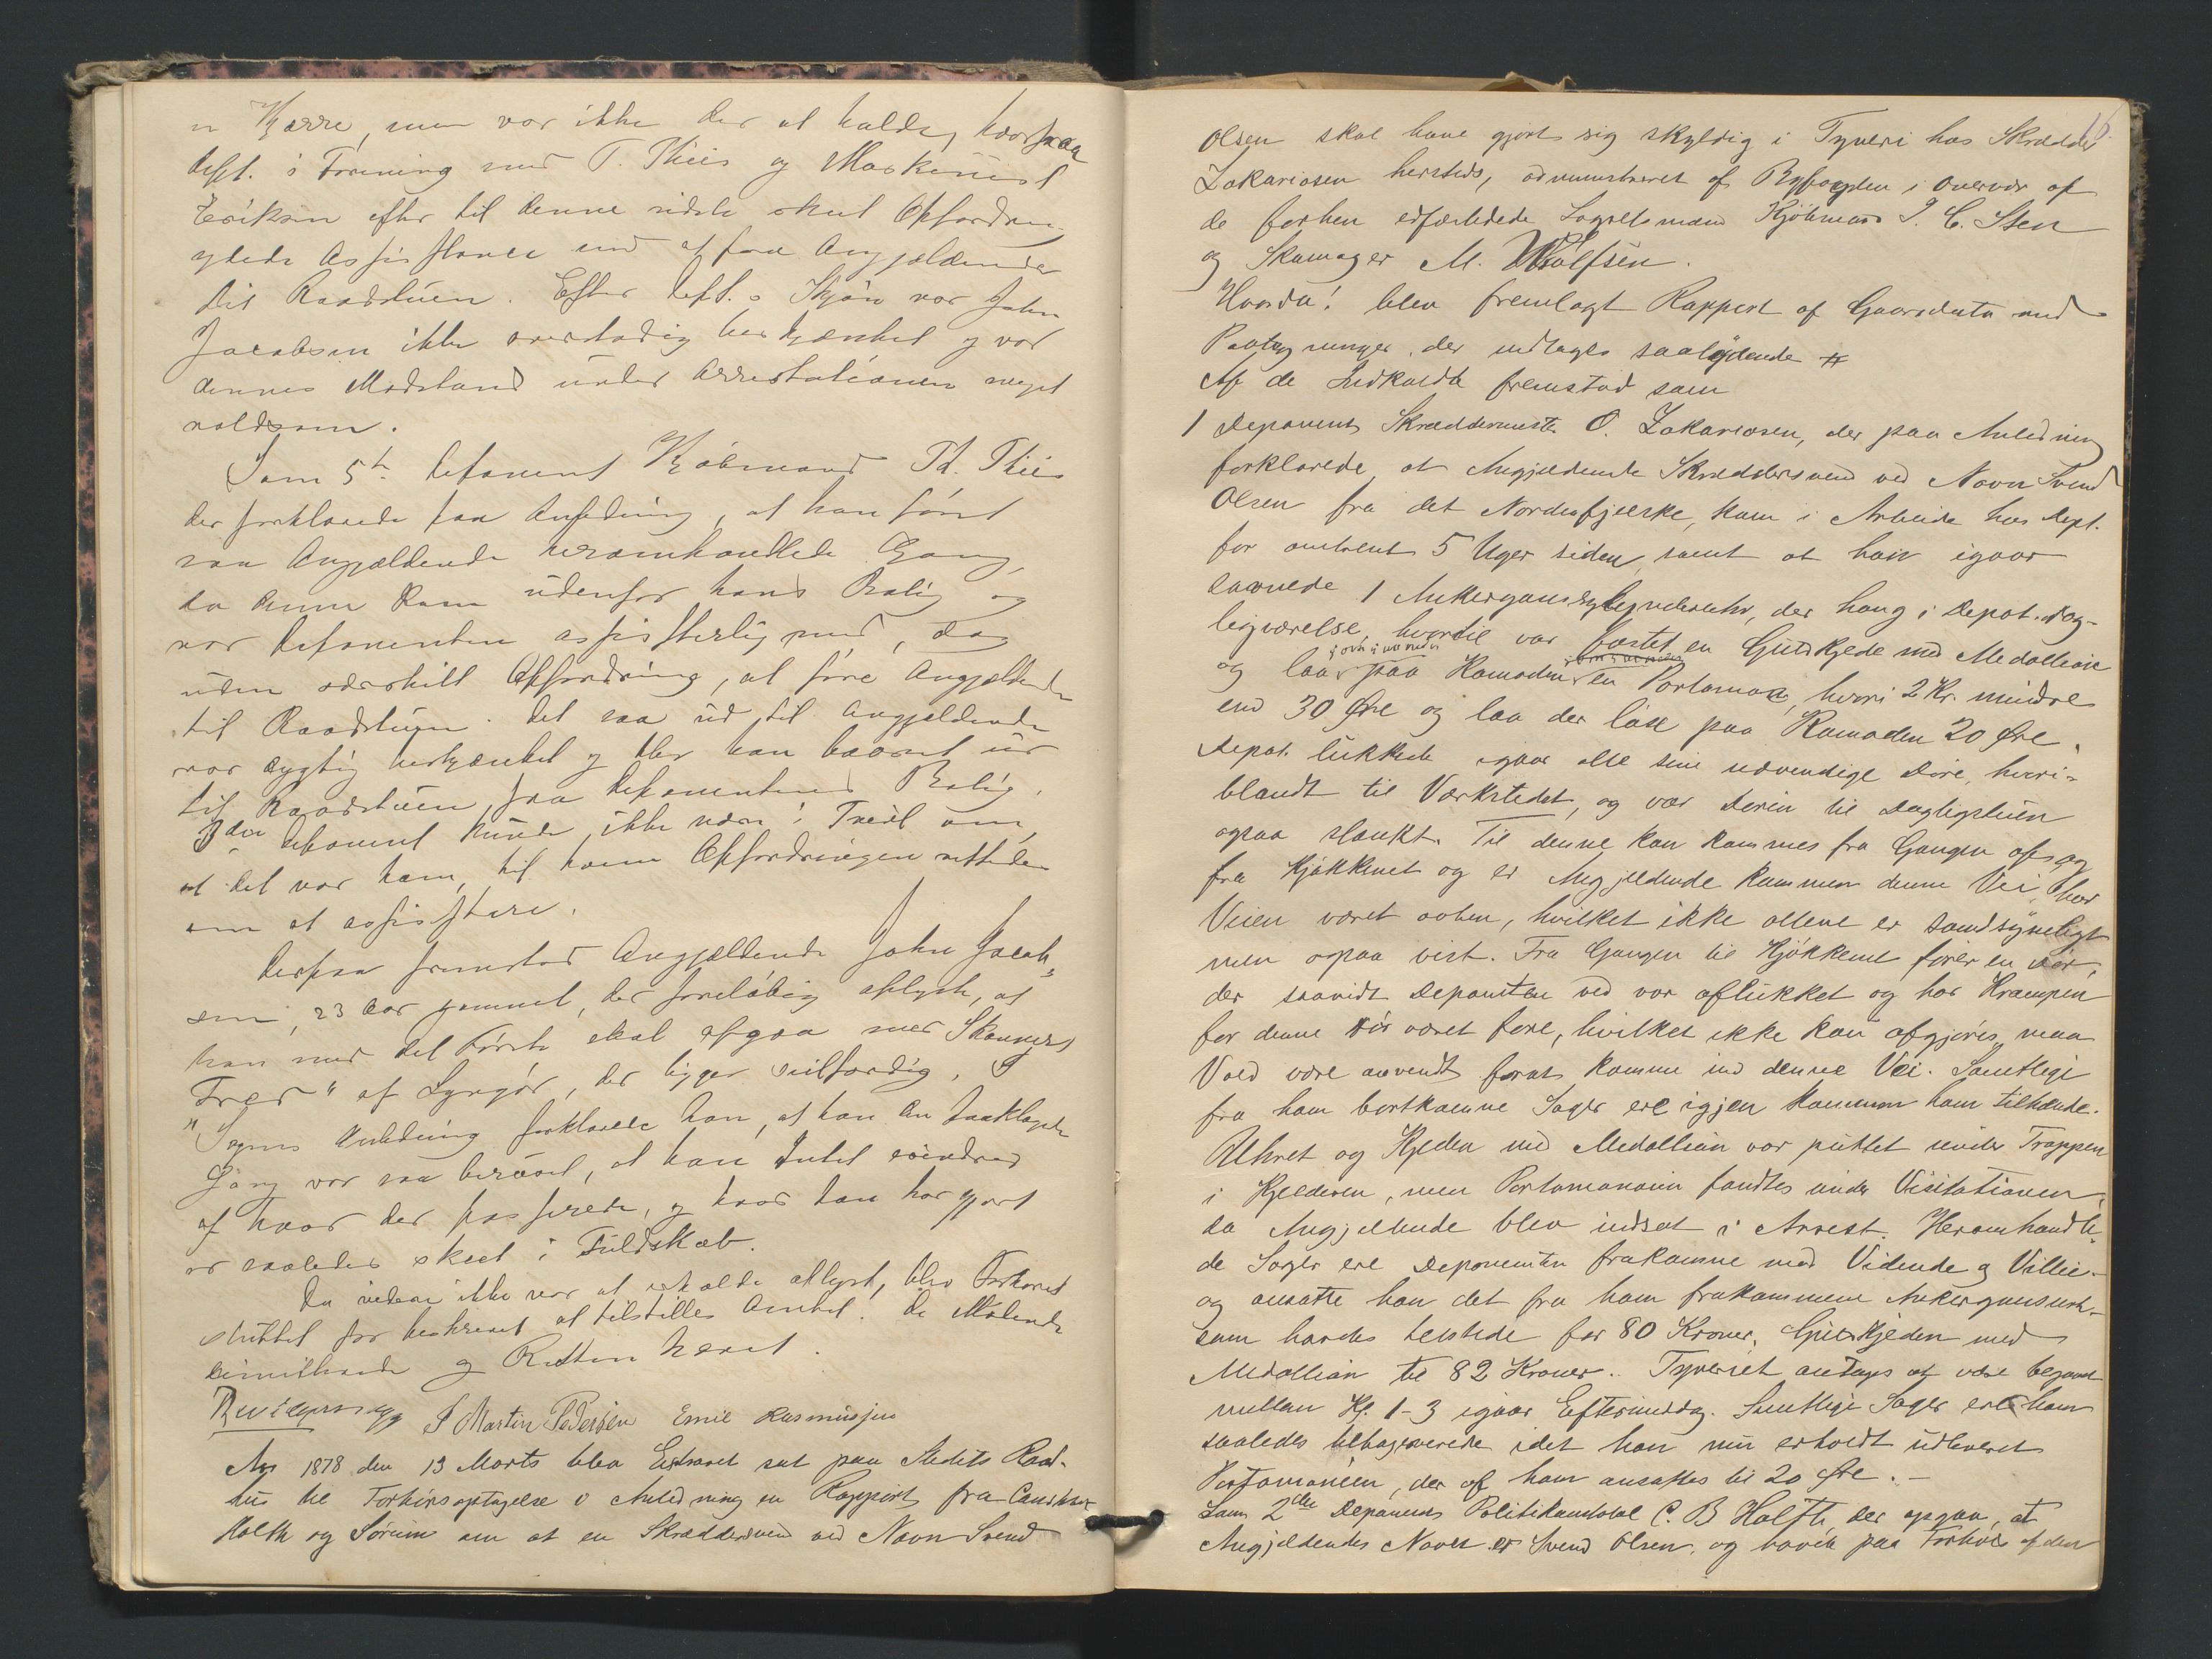 en Kjærre, men var ikke der at kalde, hvorpaa
Dept. i Forening med T. Thiis og Maskinist
Eriksen efter til denne sidste skeet Opfordring
ydede Assistance med at faa Angjældende
til Raadstuen. Efter Dept.s Skjøn var John
Jacobsen ikke overstadig beskjænket og var
dennes Modstand under Arrestationen meget
voldsom.
Som 5te Deponent Kjøbmand Th. Thiis
der forklarede paa Anledning, at han først
saa Angjældende heromhandlede Gang,
da denne kom udenfor hans Bolig og
var Deponenten assisterlig med, dog
uden særskilt Opfordring, at føre Angjældende
til Raadstuen. Det saa ud til Angjældende
var dygtig beskjænket og blev han baaret
til Raadstuen fra Deponentens Bolig.
3die Deponent kunde ikke være i Tvivl om,
at det var ham, til hvem Opfordringen rettedes
om at assistere.
Derpaa fremstod Angjældende John Jacob-
sen, 23 Aar gammel, der foreløbig oplyste, at
han med det Første skal afgaa med Skonnert
"Fred" af Lyngør, der ligger seilfærdig. I
Sagens Anledning forklarede han, at han den paaklagede
Gang var saa beruset, at han Intet erindred
af hvad der passerede, og hvad han har gjort
er saaledes skeet i Fuldskab.
Da videre ikke var at erholde oplyst, blev Forhøret
sluttet for beskrevet at tilstilles Amtet. De Mødende
dimitterede og Retten hævet.
S Martin Pedersen Emil Rasmussen
Ao 1878 den 13 Marts blev Extraret sat paa Stedets Raad-
hus til Forhørsoptagelse i Anledning en Rapport fra Const.
Holth og Sørum om at en Skræddersvend ved Navn Svend
16.
Olsen skal have gjort sig skyldig i Tyveri hos Skrædder
Zakariasen hersteds, administreret af Byfogden i Overvær af
de forhen edfæstede Lagrettesmænd Kjøbmand P. C. Steen
og Skomager M. Wolfsen.
Hvorda! blev fremlagt Rapport af Gaarsdato med
Paategninger, der indtages saalydende #
Af de Indkaldte fremstod som
1 Deponent Skræddermester O. Zakariasen, der paa Anledning
forklarede, at Angjældende Skræddersvend ved Navn Svend
Olsen fra det Nordenfjelske, kom i Arbeide hos Dept.
for omtrent 5 Uger siden, samt at han igaar
savnede 1 Ankergangscylinderuhr, der hang i Depot. Dag-
ligværelse, hvortil var fæstet en Guldkjede med Medallion
og laa paa Komoden en Portomonæ, hvori 2 Kr. mindre
end 30 Øre og laa der løse paa Komoden 20 Øre.
Depot. lukkede igaar alle sine udvendige Døre, hvori-
blandt til Værkstedet, og var Døren til Dagligstuen
ogsaa stænkt. Til denne kan kommes fra Gangen og
fra Kjøkkenet og er Angjældende kommen denne Vei, har
Veien været aaben, hvilket ikke allene er sandsynligt
men ogsaa vist. Fra Gangen til Kjøkkenet fører en Dør,
der saavidt Deponenten ved var aflukket og har Krampen
for denne Dør været fore, hvilket ikke kan afgjøres, maa
Vold være anvendt forat komme ind denne Vei. Samtlige
fra ham bortkomne Sager ere igjen kommen ham tilhænde.
Uhret og Kjeden med Medallion var puttet under Trappen
i Kjelderen, men Portomonæen fandtes under Visitationen,
da Angjældende blev indsat i Arrest. Heromhandle-
de Sager ere Deponenten frakomne mod Vidende og Villie
og ansatte han det fra ham frakommene Ankergangsuhr
som havdes tilstede for 80 Kroner, Guldkjeden med
Medallion til 82 Kroner. Tyveriet antages at være begaaet
mellem Kl. 1-3 igaar Eftermiddag. Samtlige Sager ere ham
saaledes tilbageleverede idet han nu erholdt udleveret
Portomonæen, der af ham ansattes til 20 Øre.-
Som 2den Deponent Politikonstabel C. B. Holth der opgav, at
Angjældendes Navn er Svend Olsen, og havde paa Forhør af den